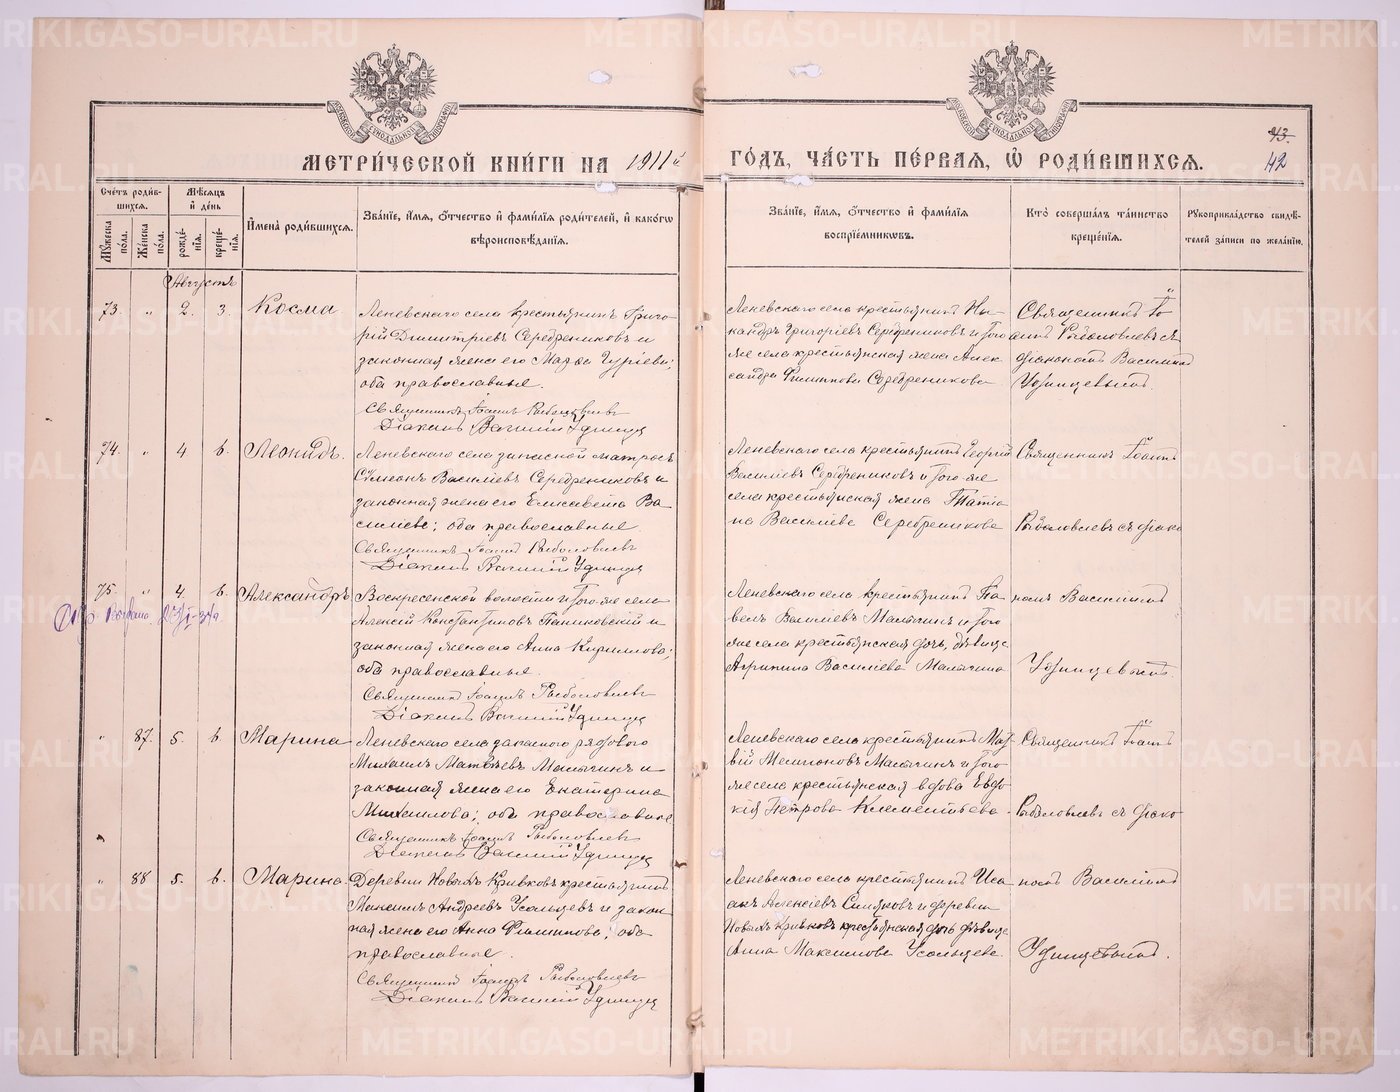 МЕТРИ́ЧЕСКОЙ КНИ́ГИ НА 1911й ГО́ДЪ, ЧА́СТЬ ПЕ́РВАЯ, Ѡ҆ РОДИ́ВШИХСѦ.
43.
42
Сче́тъ роди́в-
шихсѧ.
Мѣ́сѧцъ
и҆ де́нь
Мꙋ́жеска по́ла.
Же́нска по́ла.
рожде́-
нїѧ.
креще́-
нїѧ.
И҆мена̀ роди́вшихсѧ.
Зва́нїе, и҆́мѧ, ѻ҆́тчество и҆ фами́лїѧ роди́телей, и҆ како́гѡ
вѣроисповѣ́данїѧ.
Зва́нїе, и҆́мѧ, ѻ҆́тчество и҆ фами́лїѧ
воспрїе́мникѡвъ.
Кто̀ соверша́лъ та́инство
креще́нїѧ.
Рꙋкоприкла́дство свидѣ́-
телей за́писи по жела́нїю.
Августъ
73. " 2. 3. Косма
Леневскаго села крестьянинъ Григо-
рій Димитріевъ Серебрениковъ и
законная жена его Марѳа Гуріева;
оба православные.
Священникъ Іоаннъ Рыболовлевъ
Діаконъ Василій Удинцев
Леневскаго села крестьянинъ Ни-
кандръ Григоріевъ Серебрениковъ и того
же села крестьянская жена Алек-
сандра Филиппова Серебреникова
Священникъ Іо
аннъ Рыболовлевъ съ
діакономъ Василіемъ
Удинцевымъ.
74. " 4 6. Леонидъ.
Леневскаго села запасной матросъ
Сѵмеонъ Василіевъ Серебрениковъ и
законная жена его Елисавета Ва-
силіева; оба православные.
Священникъ Іоаннъ Рыболовлевъ
Діаконъ Василій Удинцев
Леневскаго села крестьянинъ Георгій
Василіевъ Серебрениковъ и того-же
села крестьянская жена Татіа-
на Василіева Серебреникова
Священникъ Іоаннъ
Рыболовлевъ съ діако
75. " 4. 6. Александръ
Воскресенской волости и того-же села
Алексій Константиновъ Паниковскій и
законная жена его Анна Кириллова;
оба православные.
Священникъ Іоаннъ Рыболовлевъ
Діаконъ Василій Удинцев
Леневскаго села крестьянинъ Па-
велъ Василіевъ Малыгинъ и того
же села крестьянская дочь, дѣвица
Агрипина Василіева Малыгина
номъ Василіемъ
Удинцевымъ.
" 87. 5. 6. Марина
Леневскаго села запасного рядового
Михаилъ Матвѣевъ Малыгинъ и
законная жена его Екатерина
Михаилова; оба православные
Священникъ Іоаннъ Рыболовлевъ
Діаконъ Василій Удинцев
Леневскаго села крестьянинъ Мат-
вій Малыгинъ и того
же села крестьянская вдова Евдо-
кія Петрова Клементьева.
Священникъ Іоаннъ
Рыболовлевъ съ діако
" 88 5. 6. Марина.
Деревни Новыхъ Кривковъ крестьянинъ
Максимъ Андреевъ Усольцевъ и закон-
ная жена его Анна Филиппова; оба
православные.
Священникъ Іоаннъ Рыболовлевъ
Діаконъ Василій Удинцев
Леневскаго села крестьянинъ Иса-
акъ Алексіевъ и деревни
Новыхъ Кривковъ крестьянская дочь дѣвица
Анна Максимова Усольцева.
номъ Василіемъ
Удинцевымъ.
METRIKI.GASO-URAL.RU